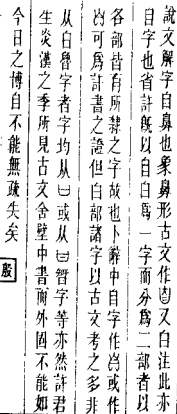 說文解字自鼻也象鼻形古文作又白注此亦
自字也省許旣以自白爲一字而分爲二部者以
各部皆有所隸之字故也卜辭中自字作或作
可爲許書之證但白部諸字以古文考之多非
从白魯字者字均从或从智字等亦然許君
生炎漢之季所見古文舍壁中書而外固不能如
今日之博自不能無疏失矣
殷